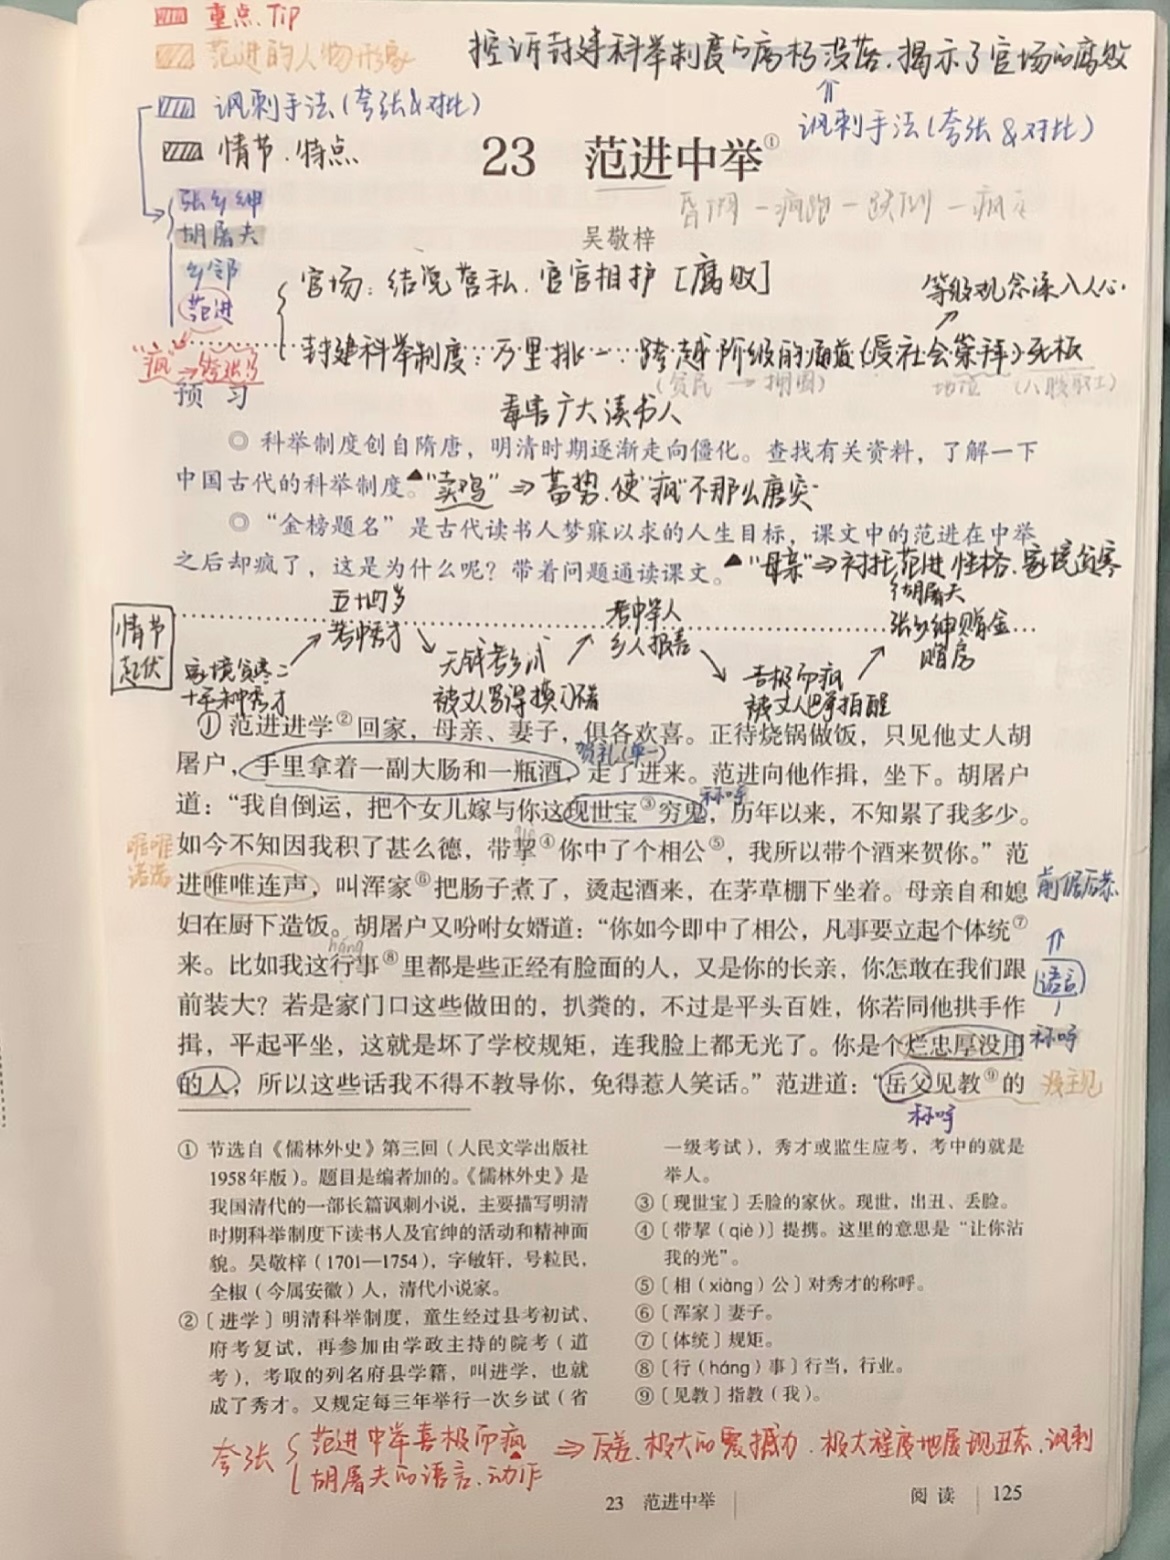 重点.Tip
范进的人物形象
控诉封建科举制度的腐朽没落.揭示了官场的腐败
讽刺手法(夸张&对比)
⇑
讽刺手法(夸张&对比)
情节.特点
23 范进中举①
张乡绅
胡屠夫
乡邻
范进
吴敬梓
官场:结党营私.官官相护[腐败]
等级观念深入人心.
封建科举制度:万里挑一 跨越阶级的通道(受社会崇拜)死板
"疯"→夸张
(贫民→
地位
预 习
毒害广大读书人
◎ 科举制度创自隋唐，明清时期逐渐走向僵化。查找有关资料，了解一下
中国古代的科举制度。▲"卖鸡"⇒蓄势.使"疯"不那么唐突
◎ “金榜题名”是古代读书人梦寐以求的人生目标，课文中的范进在中举
之后却疯了，这是为什么呢？带着问题通读课文。▲"母亲"⇒衬托范进性格.家境贫寒
情节起伏
五十四岁
考中秀才
考中举人
乡人报喜
胡屠夫
张乡绅赠金
赠房
家境贫寒
无钱考乡试
被丈人骂得摸门不着
喜极而疯
被丈人巴掌拍醒
① 范进进学②回家，母亲、妻子，俱各欢喜。正待烧锅做饭，只见他丈人胡
贺礼(单一)
屠户，手里拿着一副大肠和一瓶酒，走了进来。范进向他作揖，坐下。胡屠户
称呼
道：“我自倒运，把个女儿嫁与你这现世宝③穷鬼，历年以来，不知累了我多少。
唯唯诺诺
如今不知因我积了甚么德，带挈④你中了个相公⑤，我所以带个酒来贺你。”范
进唯唯连声，叫浑家⑥把肠子煮了，烫起酒来，在茅草棚下坐着。母亲自和媳
前倨后恭
妇在厨下造饭。胡屠户又吩咐女婿道：“你如今既中了相公，凡事要立起个体统⑦
háng
来。比如我这行事⑧里都是些正经有脸面的人，又是你的长亲，你怎敢在我们跟
语言
前装大？若是家门口这些做田的，扒粪的，不过是平头百姓，你若同他拱手作
揖，平起平坐，这就是坏了学校规矩，连我脸上都无光了。你是个烂忠厚没用
称呼
的人，所以这些话我不得不教导你，免得惹人笑话。”范进道：“岳父见教⑨的
没主见
称呼
① 节选自《儒林外史》第三回（人民文学出版社
1958年版）。题目是编者加的。《儒林外史》是
我国清代的一部长篇讽刺小说，主要描写明清
时期科举制度下读书人及官绅的活动和精神面
貌。吴敬梓（1701—1754），字敏轩，号粒民，
全椒（今属安徽）人，清代小说家。
② 〔进学〕明清科举制度，童生经过县考初试、
府考复试，再参加由学政主持的院考（道
考），考取的列名府县学籍，叫进学，也就
成了秀才。又规定每三年举行一次乡试（省
一级考试），秀才或监生应考，考中的就是
举人。
③〔现世宝〕丢脸的家伙。现世，出丑、丢脸。
④〔带挈（qiè）〕提携。这里的意思是“让你沾
我的光”。
⑤〔相（xiàng）公〕对秀才的称呼。
⑥〔浑家〕妻子。
⑦〔体统〕规矩。
⑧〔行（háng）事〕行当，行业。
⑨〔见教〕指教（我）。
夸张{范进中举喜极而疯 ⇒反差.极大的震撼力.极大程度地展现丑态.讽刺
胡屠夫的语言.动作
23 范进中举
阅读 125